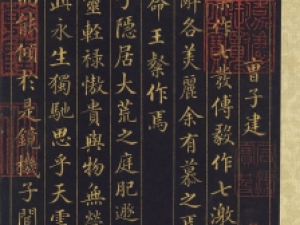 曹子建
作七發傅毅作七激
辭各美麗余有慕之焉
命王粲作焉
子隱居大荒之庭肥遯
靈輕祿傲貴與物無營
眞永生獨馳思乎天雲
而能傾於是鏡機子聞